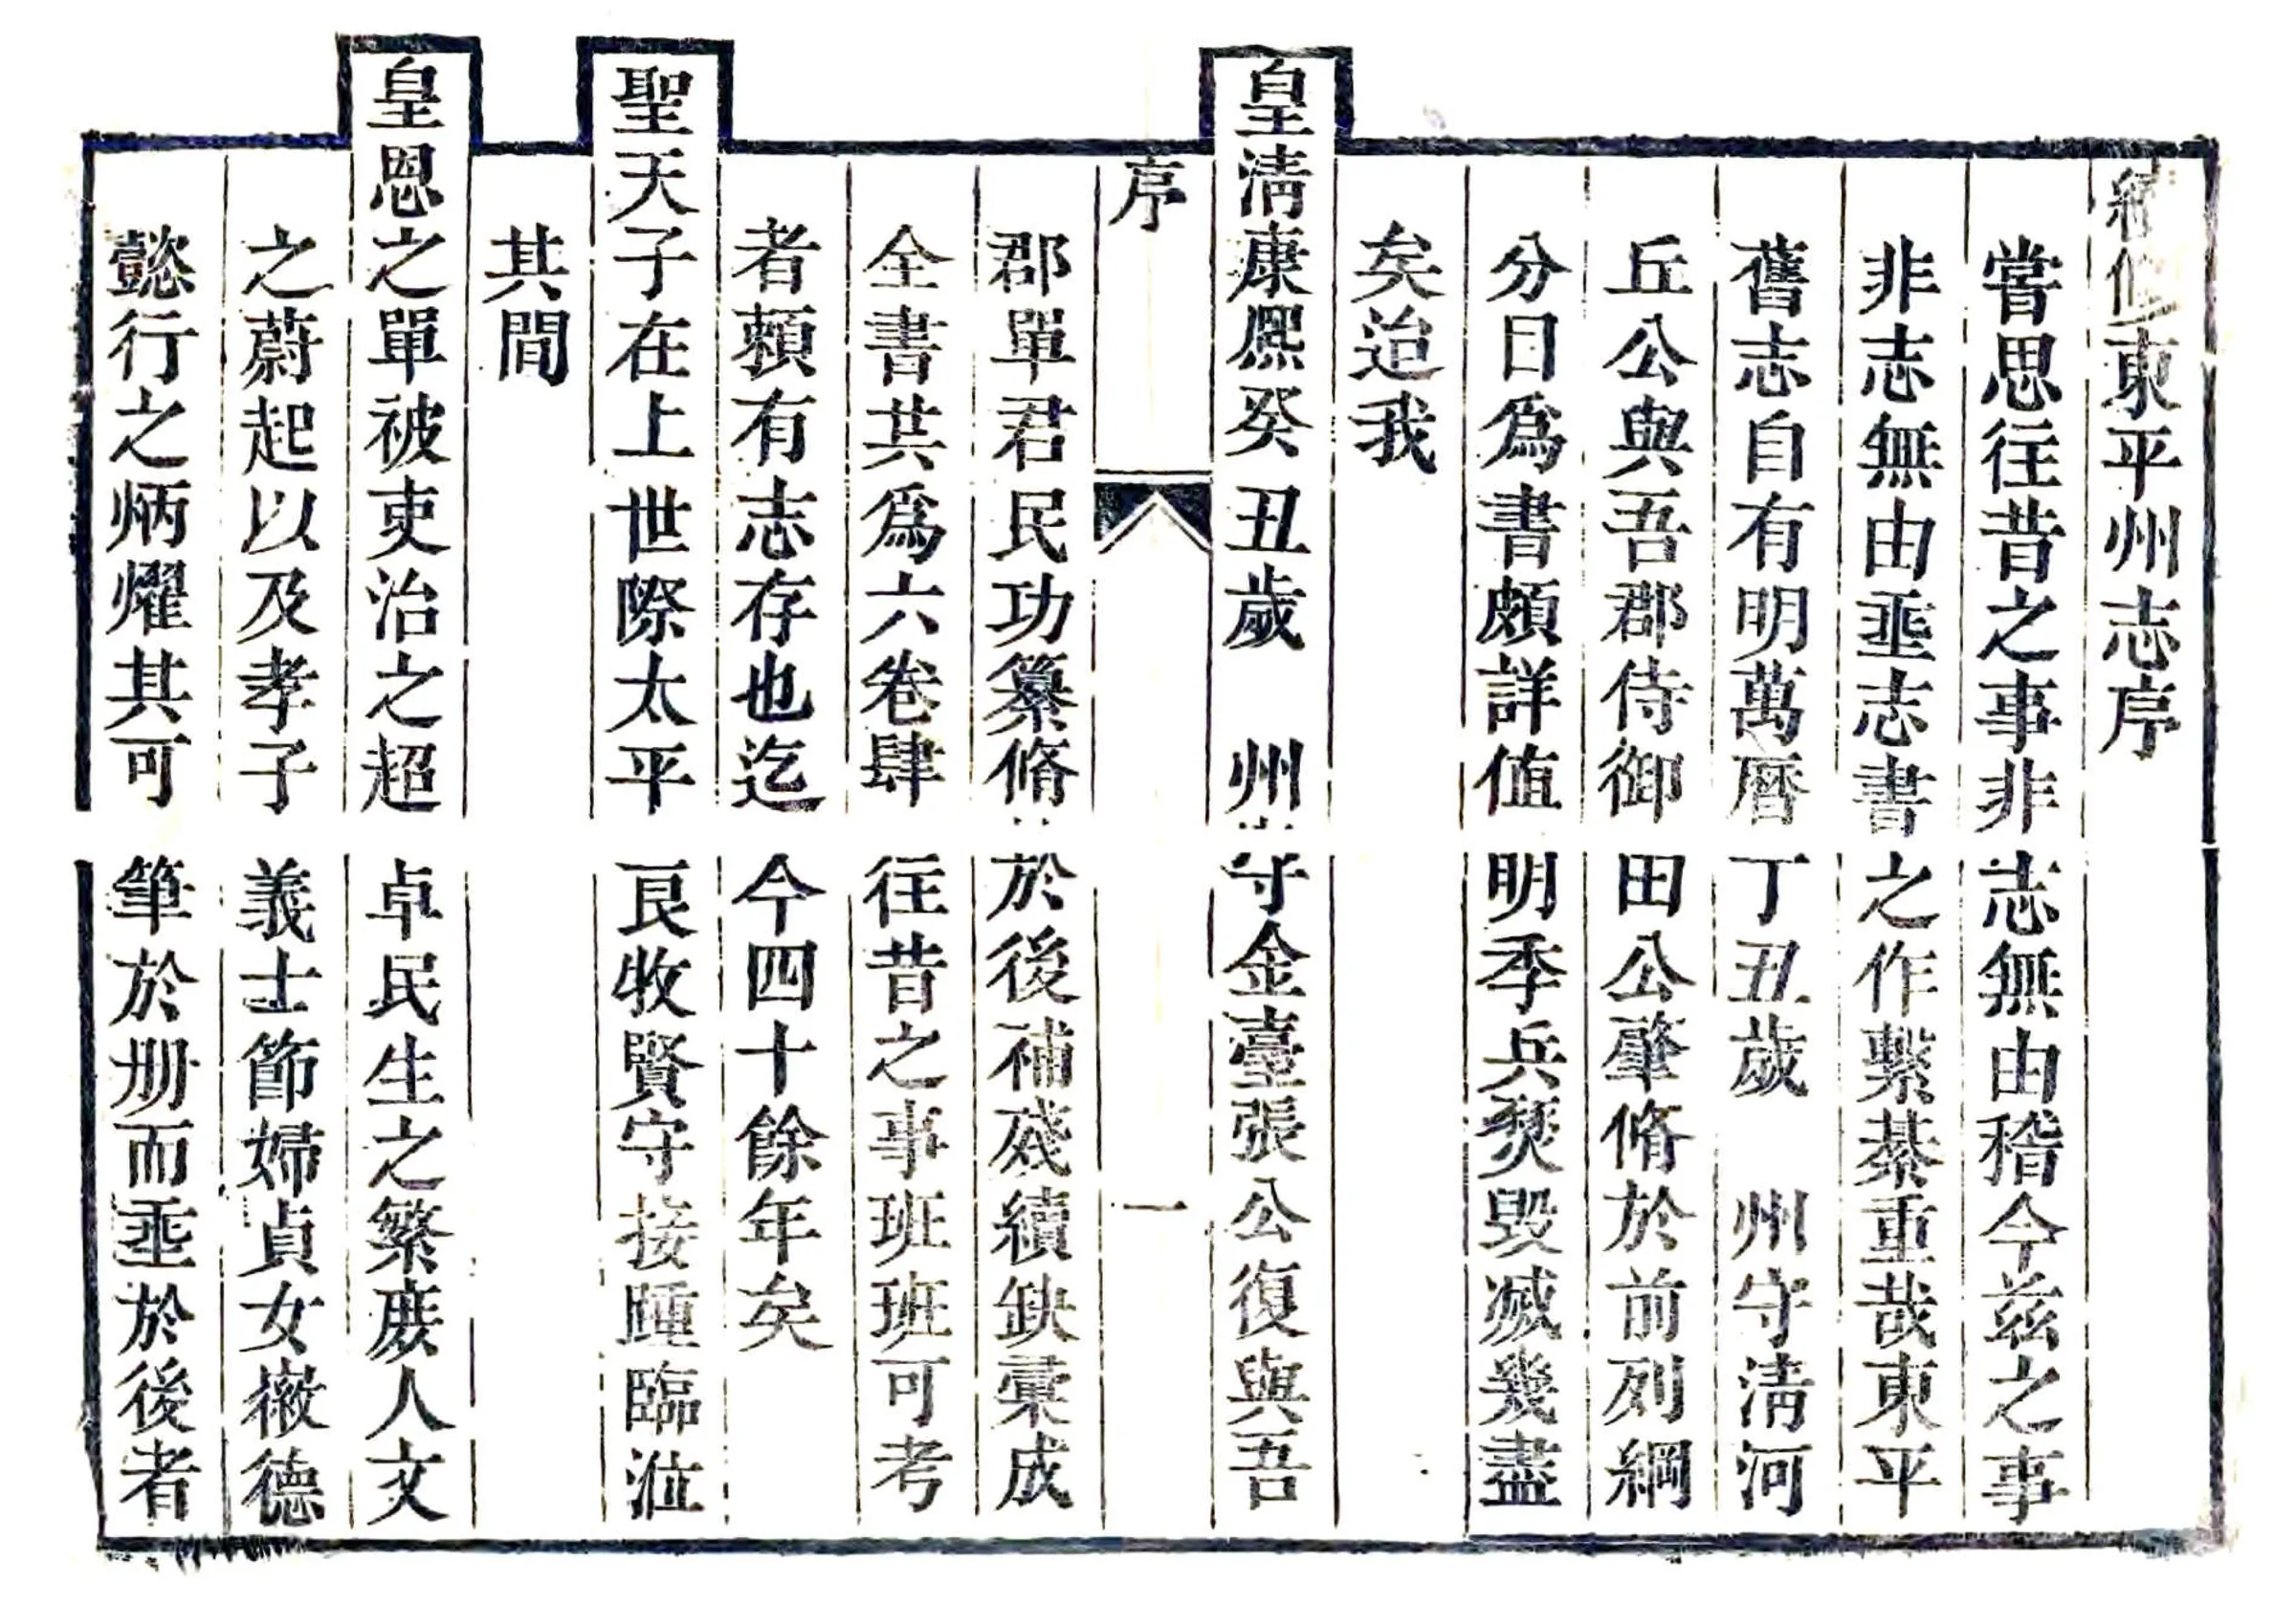 續修東平州志序
嘗思往昔之事非志無由稽今兹之事
非志無由垂志書之作繫綦重哉東平
舊志自有明萬曆丁丑歲　州守清河
丘公與吾郡侍御田公肇脩於前列綱
分目爲書頗詳值明季兵燹毀滅幾盡
矣迨我
皇清康熙癸丑歲　州守金臺張公復與吾
序
一
郡單君民功纂脩於後補殘續缺彙成
全書共爲六卷肆往昔之事班班可考
者賴有志存也迄今四十餘年矣
聖天子在上世際太平良牧賢守接踵臨涖
其間
皇恩之單被吏治之超卓民生之繁庶人文
之蔚起以及孝子義士節婦貞女徽德
懿行之炳燿其可筆於册而垂於後者